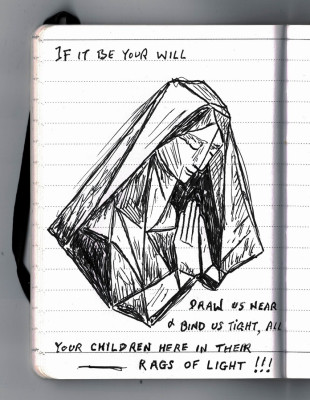 IF IT BE YOUR WILL
DRAW US NEAR
& BIND US TIGHT, ALL
YOUR CHILDREN HERE IN THEIR
RAGS OF LIGHT !!!